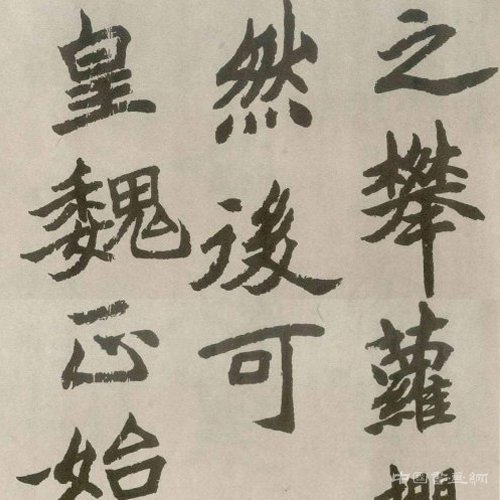 之攀蘿
然後可
皇魏正始
中国书画網